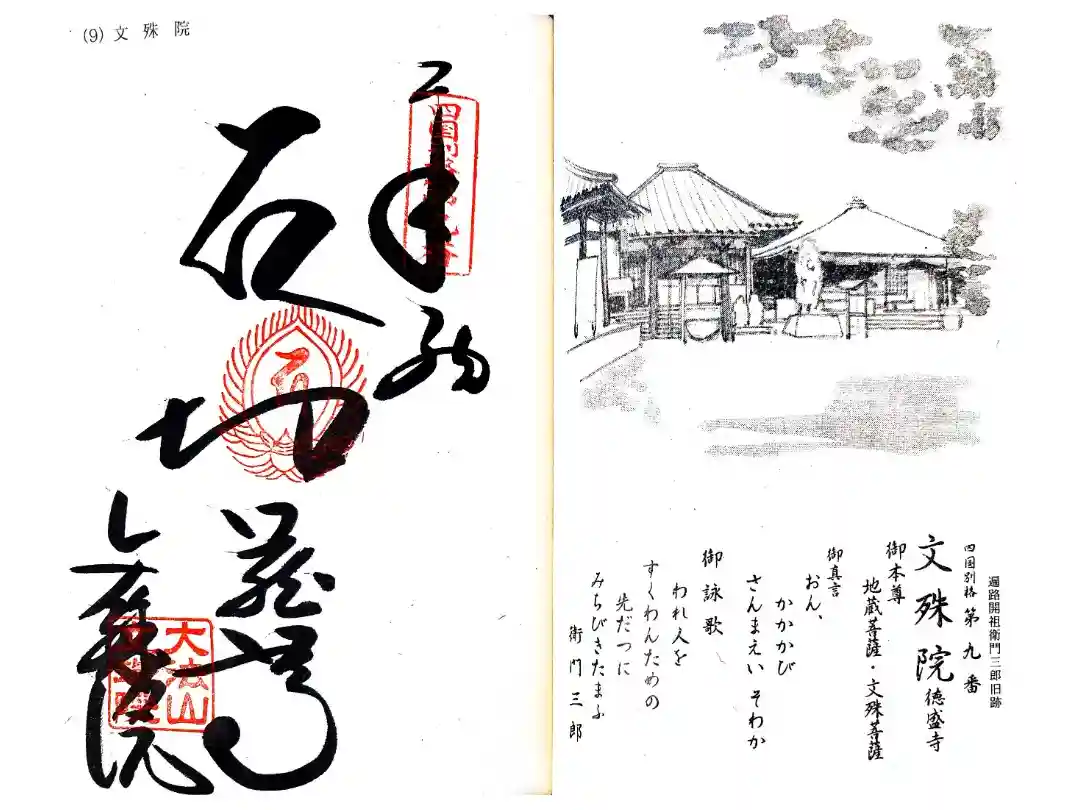 (9) 文殊院
奉納
大法山
遍路開祖衛門三郎旧跡
四国別格 第九番
文殊院 徳盛寺
御本尊
地蔵菩薩・文殊菩薩
御真言
おん、
かかかび
さんまえい そわか
御詠歌
われ人を
すくわんための
先だつに
みちびきたまふ
衛門三郎